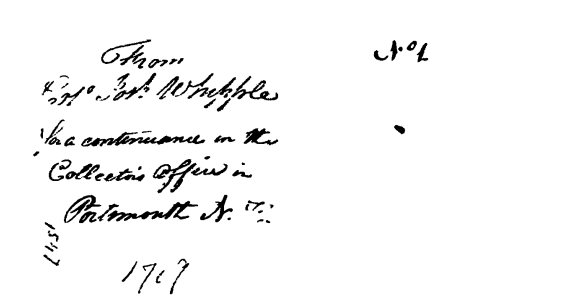 From
Jos.h Whipple
for a continuance in the
Collector's Office in
Portsmouth N.
No 1